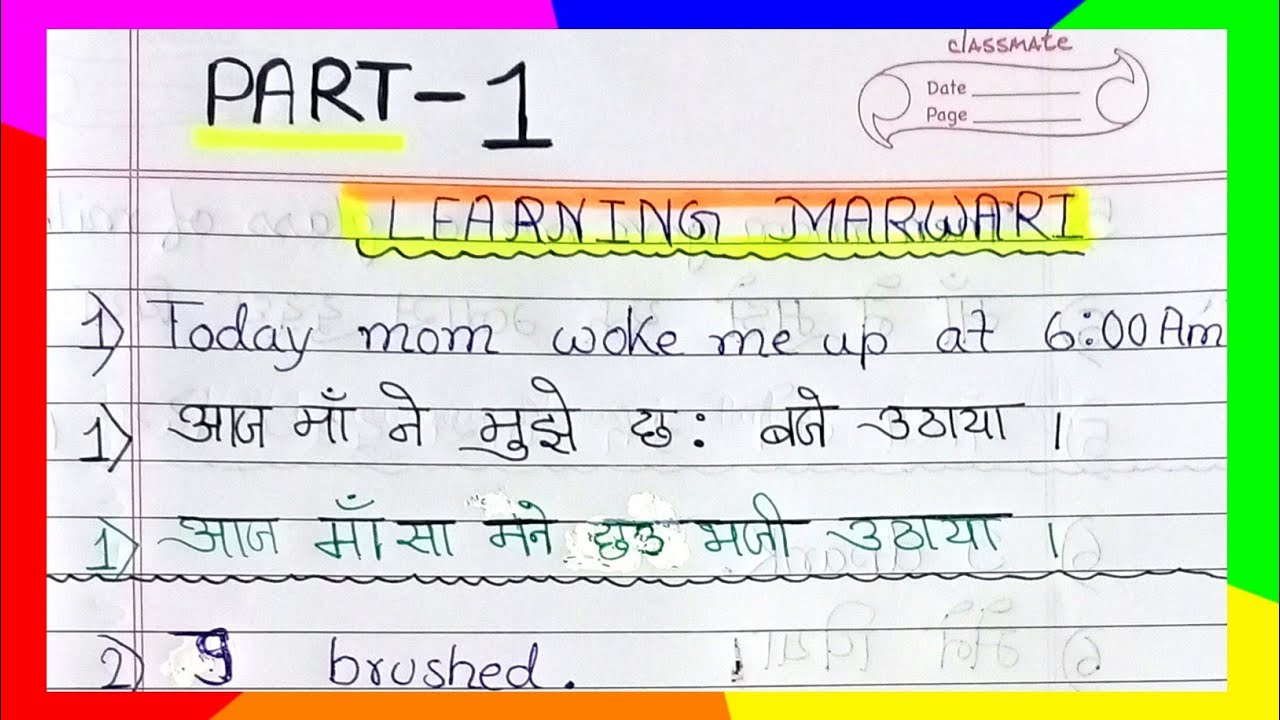 PART-1
classmate
Date
Page
LEARNING MARWARI
1) Today mom woke me up at 6:00 Am
1) आज माँ ने मुझे छ: बजे उठाया ।
1) आज माँसा मने छउ भजी उठाया ।
2) I brushed.